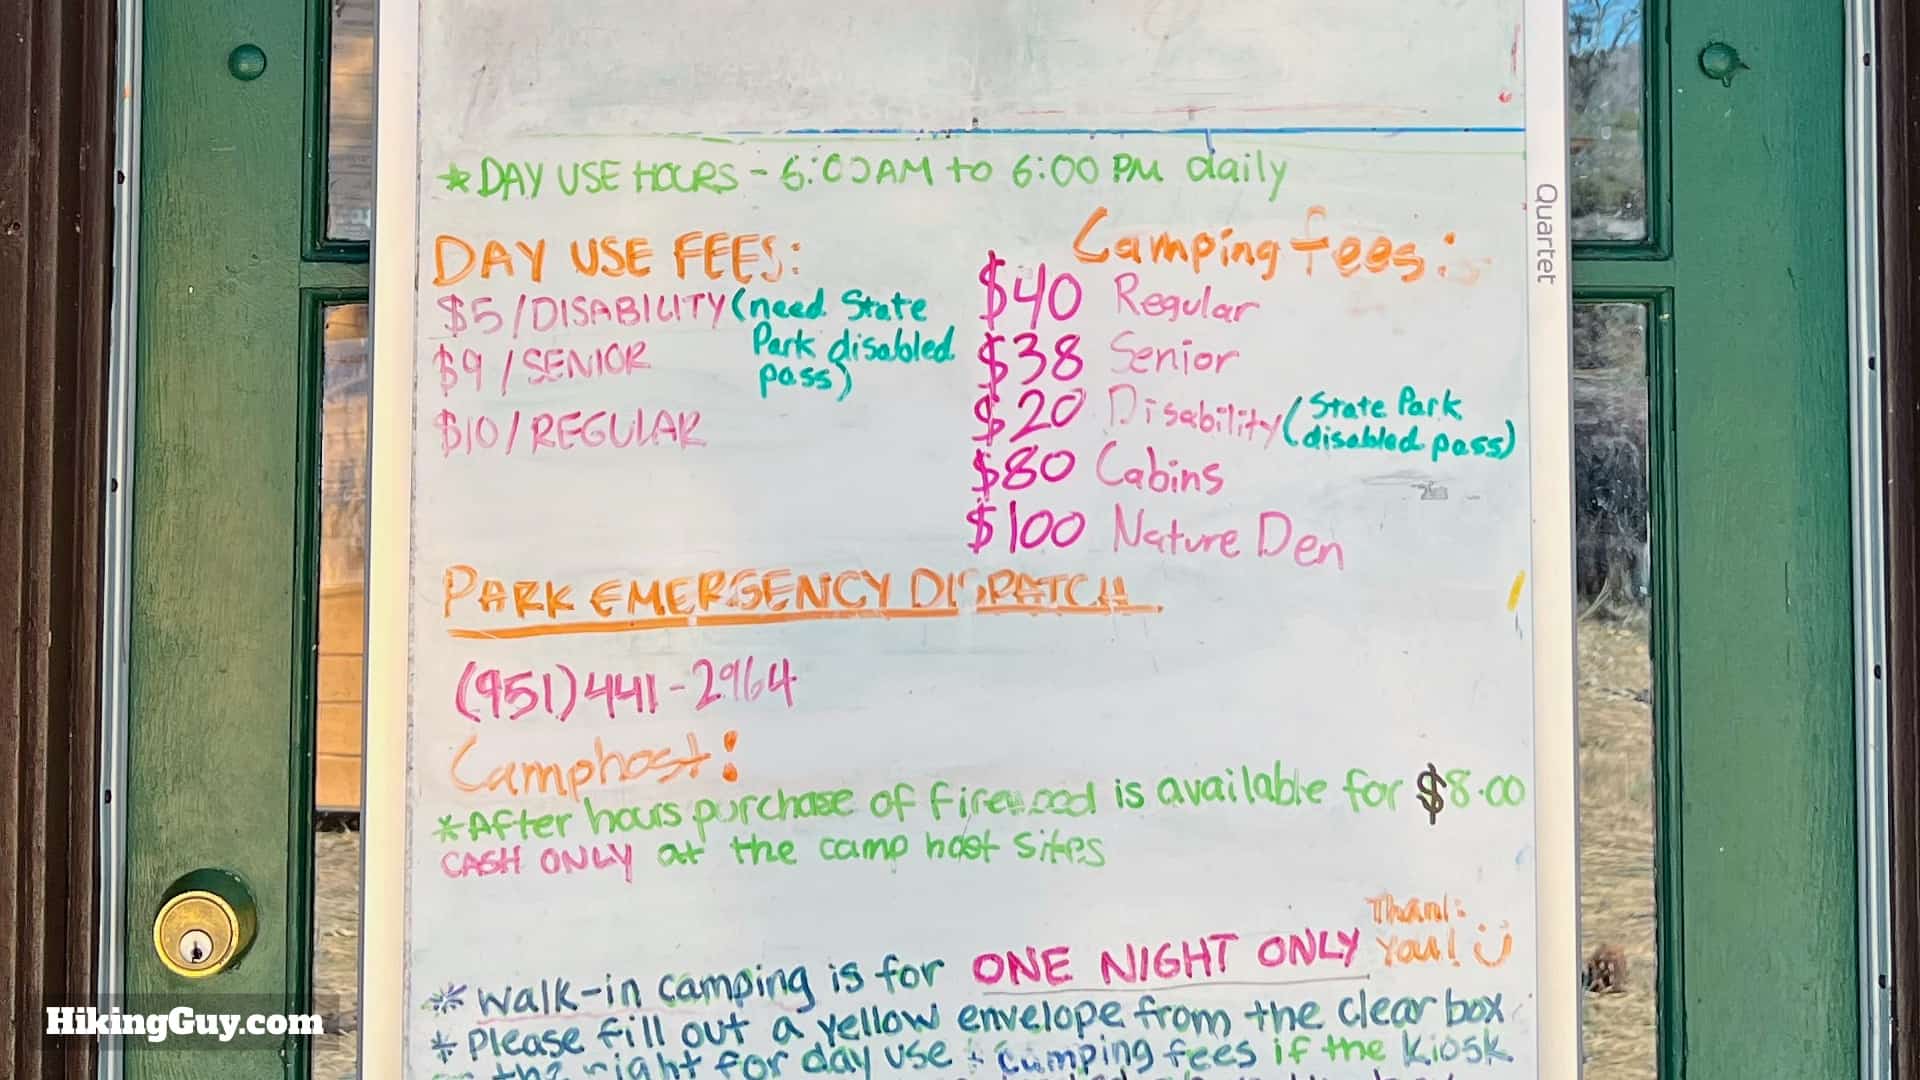 *DAY USE HOURS - 6:00AM to 6:00 PM daily
DAY USE FEES:
$5/DISABILITY (need State
Park disabled
pass)
$9/SENIOR
$10/REGULAR
Camping fees:
$40 Regular
$38 Senior
$20 Disability (State Park
disabled pass)
$80 Cabins
$100 Nature Den
Quartet
PARK EMERGENCY DISPATCH
(951)441-2964
Camphost:
*After hours purchase of firewood is available for $8.00
CASH ONLY at the camp host sites
Thank
You!
* Walk-in camping is for ONE NIGHT ONLY
* Please fill out a yellow envelope from the clear box
the right for day use + camping fees if the kiosk
HikingGuy.com